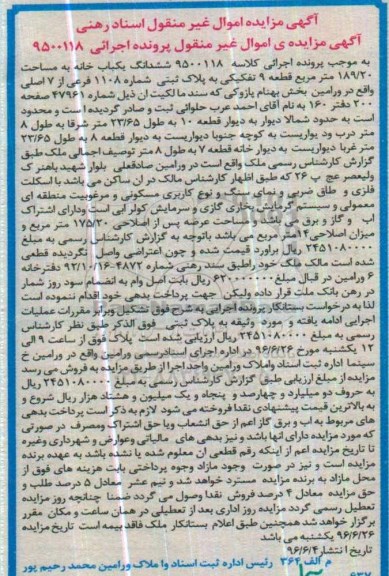 آگهی مزایده اموال غیر منقول اسناد رهنی
آگهی مزایده ی اموال غیر منقول پرونده اجرائی ۹۵۰۰۱۱۸
به موجب پرونده اجرائی کلاسه ۹۵۰۰۱۱۸ ششدانگ یکباب خانه به مساحت
۱۸۹/۲۰ متر مربع قطعه ۹ تفکیکی به پلاک ثبتی شماره ۱۱۰۸ فرعی از ۷ اصلی
واقع در ورامین بخش بهنام پازوکی که سند مالکیت ان ذیل شماره ۴۷۹۶۱ صفحه
۲۰۰ دفتر ۱۶۰ به نام آقای احمد عرب حلوائی ثبت و صادر گردیده است و محدود
است به حدود شمالا دیوار به دیوار قطعه ۱۰ به طول ۲۳/۶۵ متر شرقا به طول ۸
متر درب ود یواریست به کوچه جنوبا دیواریست به دیوار قطعه ۸ به طول ۲۳/۶۵
متر غربا دیواریست به دیوار خانه قطعه ۷ به طول ۸ متر توصیف اجمالی ملک طبق
گزارش کارشناس رسمی ملک واقع است در ورامین صادقعلی بلوار شهید باهنر ک
ولیعصر عج پ ۲۶ که طبق اظهار کارشناس مالک در ان ساکن می باشد با اسکلت
فلزی و طاق ضربی و نمای سنگ و نوع کاربری مسکونی و مرغوبیت منطقه ای
معمولی و سیستم گرمایش بخاری گازی و سرمایش کولر آبی است ودارای اشتراک
اب و گاز و برق می باشد و مساحت عرصه پس از اصلاحی ۱۷۵/۲۰ متر مربع و
میزان اصلاحی ۱۴ متر مربع می باشد باتوجه به گزارش کارشناس رسمی به مبلغ
۲۴۵۱۰۸۰۰۰۰ ریال براورد قیمت شده و چون اعتراضی واصل نگردیده قطعی
شده است مالک ملک خود راطبق سند رهنی شماره ۴۸۷۲-۹۲/۱۰/۱۶ دفترخانه
۶ ورامین در قبال مبلغ ۶۲۰۰۰۰۰۰۰ ریال بابت اصل وام به انضمام سود روز شمار
در رهن بانک ملت قرار داده ولیکن جهت پرداخت بدهی خود اقدام ننموده است
لذا به درخواست بستانکار پرونده اجرایی به شرح فوق تشکیل وبرابر مقررات عملیات
اجرایی ادامه یافته و مورد وثیقه به پلاک ثبتی فوق الذکر طبق نظر کارشناس
رسمی به مبلغ ۲۴۵۱۰۸۰۰۰۰ ریال ارزیابی شده است پلاک فوق از ساعت ۹ الی
۱۲ یکشنبه مورخ ۹۶/۶/۲۶ در اداره اجرای اسنادرسمی ورامین واقع در ورامین خ
سینما اداره ثبت اسناد واملاک ورامین واحد اجرا از طریق مزایده به فروش می رسد
مزایده از مبلغ ارزیابی طبق گزارش کارشناس رسمی به مبلغ ۲۴۵۱۰۸۰۰۰۰ ریال
به حروف دو میلیارد و چهارصد و پنجاه و یک میلیون و هشتاد هزار ریال شروع و
به بالاترین قیمت پیشنهادی نقدا فروخته می شود لازم به ذکر است پرداخت بدهی
های مربوط به اب و برق گاز اعم از حق انشعاب ویا حق اشتراک ومصرف در صورتی
که مورد مزایده دارای انها باشد و نیز بدهی های مالیاتی وعوارض و شهرداری وغیره
تا تاریخ مزایده اعم از اینکه رقم قطعی ان معلوم شده یا نشده باشد به عهده برنده
مزایده است و نیز در صورت وجود مازاد وجوه پرداختی بابت هزینه های فوق از
محل مازاد به برنده مزایده مسترد خواهد شد و نیم عشر معادل ۵ درصد طلب و
حق مزایده معادل ۴ درصد فروش نقدا وصول می گردد ضمنا چنانچه روز مزایده
تعطیل رسمی گردد مزایده روز اداری بعد از تعطیلی در همان ساعت و مکان مقرر
برگزار خواهد شد همچنین طبق اعلام بستانکار ملک فاقد بیمه است تاریخ مزایده
۹۶/۶/۲۶ یکشنبه می باشد
تاریخ انتشار ۹۶/۶/۴
م الف ۳۶۴ رئیس اداره ثبت اسناد وا ملاک ورامین محمد رحیم پور